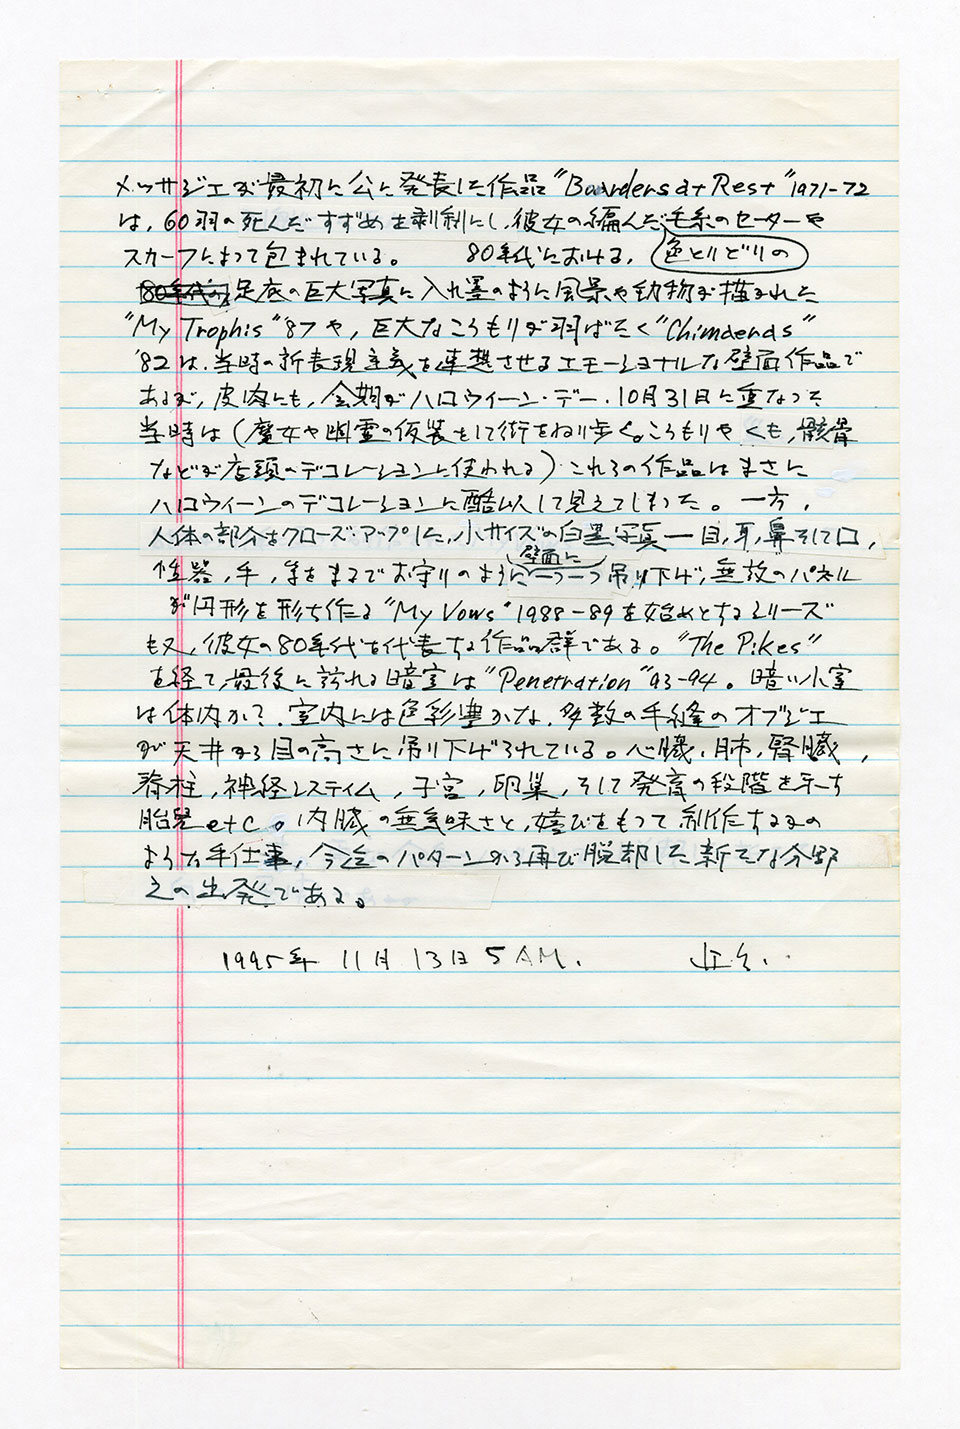 メッサジエが最初に公に発表した作品"Boarders at Rest"1971-72
は、60羽の死んだすずめを剥製にし、彼女の編んだ毛糸のセーターや
色とりどりの
スカーフによって包まれている。 80年代における、
80年代の、足底の巨大写真に入れ墨のように風景や動物が描かれた
"My Trophis"'87や、巨大なこうもりが羽ばたく"Chimaeras"
'82は、当時の新表現主義を連想させるエモーショナルな壁面作品で
あるが、皮肉にも、会期がハロウィーン・デー・10月31日に重なって
当時は(魔女や幽霊の仮装をして街をねり歩く。こうもりや くも、骸骨
などが店頭のデコレーションに使われる)これらの作品はまさに
ハロウィーンのデコレーションに酷似して見えてしまった。 一方、
人体の部分をクローズ・アップした、小サイズの白黒写真ー目,耳,鼻そして口,
壁面に
性器,手,等をまるでお守りのように一つ一つ吊り下げ,無数のパネル
が円形を形ち作る"My Vows"1988-89を始めとするシリーズ
も又、彼女の80年代を代表する作品群である。"The Pikes"
を経て,最後に訪れる暗室は"Penetration"93-94。暗い小室
は体内か?.室内には色彩豊かな、多数の手縫のオブジェ
が天井から目の高さに吊り下げられている。心臓,肺,腎臓,
脊柱,神経システィム,子宮,卵巣,そして発育の段階を示す
胎児etc。内臓の無気味さと,嬉びをもって制作するかの
ような手仕事,今迄のパターンから再び脱却した新たな分野
への出発である。
1995年 11月 13日 5 AM.